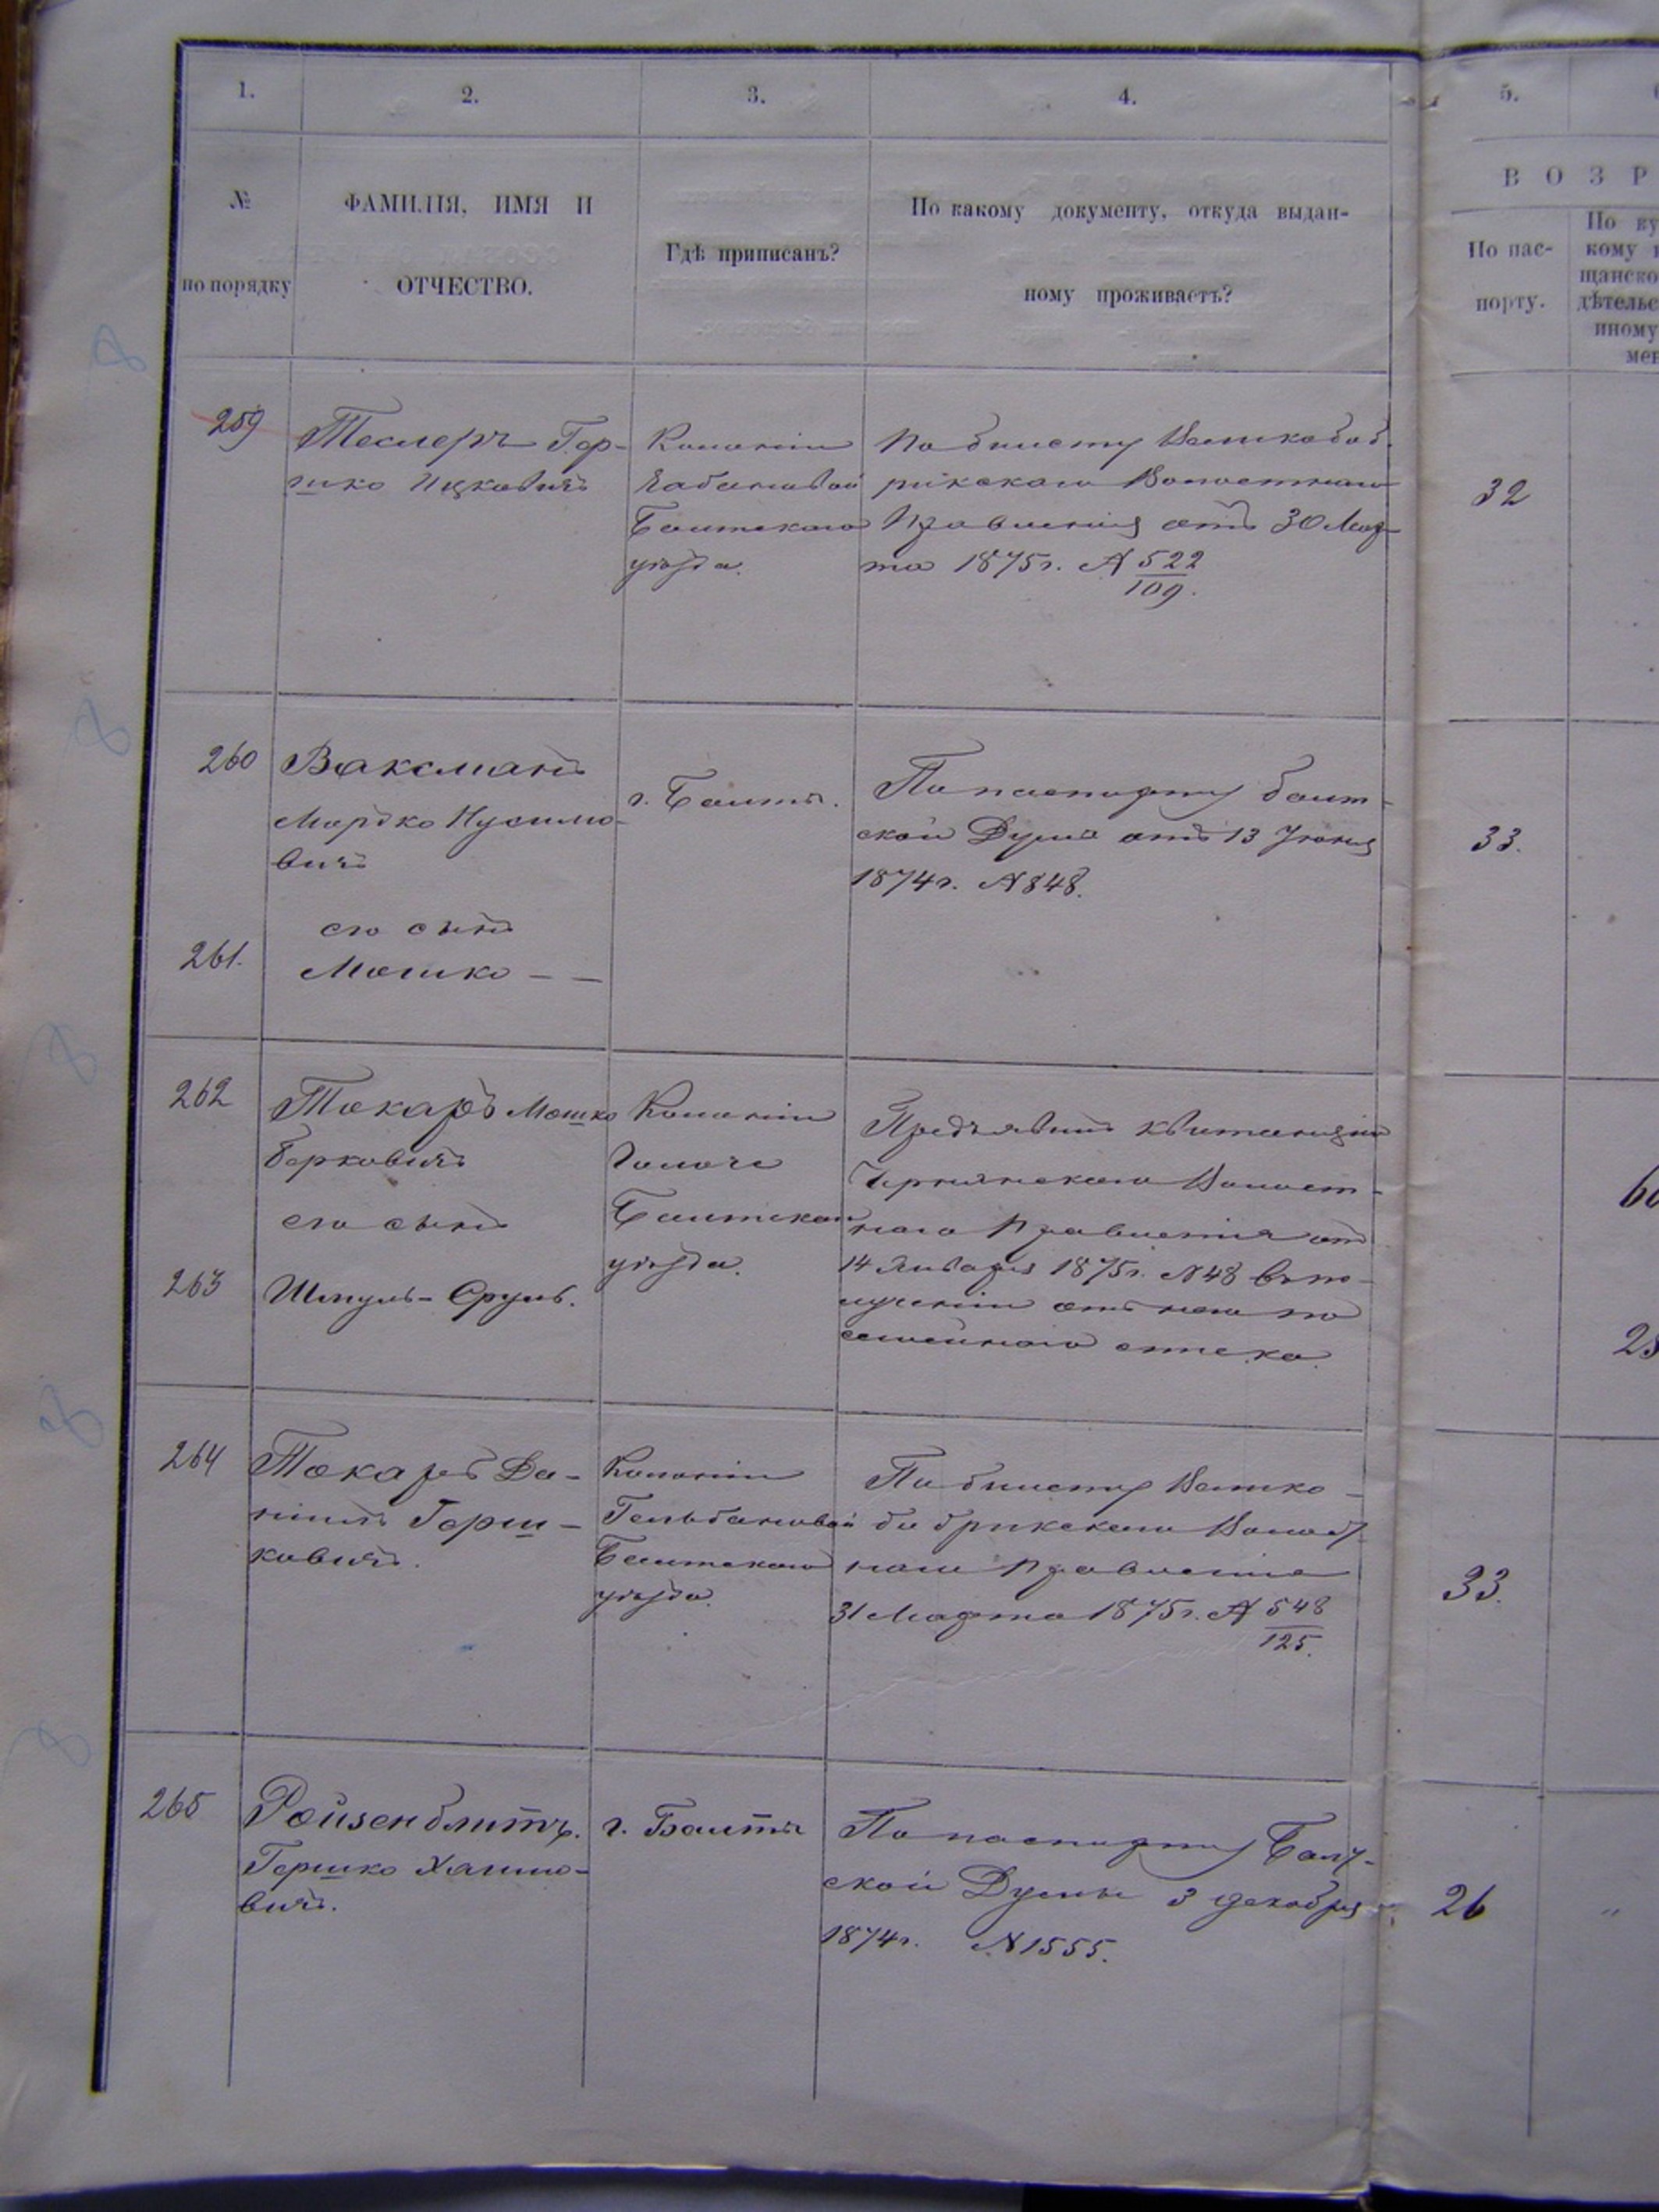 1.
2.
3.
4.
5.
№
по порядку
ФАМИЛІЯ, ИМЯ И
ОТЧЕСТВО.
Гдѣ приписанъ?
По какому документу, откуда выдан-
ному проживаетъ?
ВОЗР
По пас-
порту.
По ку
кому
щанско
дѣтельс
иному
мен
259
Теслеръ Гер-
шко Ицковичъ
Колоніи
Балтскаго
уѣзда.
По билету Велико боб-
рикскаго Волостнаго
Правленія отъ 30 Мар-
та 1875 г. № 522
109.
32
260
Ваксманъ
Мордко Нусимо-
вичъ
г. Балты.
По паспорту балт-
ской Думы отъ 13 Іюня
1874 г. № 848.
33.
261.
его сынъ
Мошко – –
262
Токаръ Мошко
Берковичъ
Колоніи
Балтскаго
уѣзда.
Предъявилъ квитанцію
Чернянскаго Волост-
наго Правленія отъ
14 Января 1875 г. № 48 въ по-
лученіи отъ него по
семейнаго списка.
60
его сынъ
263
Шмуль-Сруль.
28
264
Токаръ Да-
ніилъ Герш-
ковичъ.
Колоніи
Гельбиновой
Балтскаго
уѣзда.
По билету Велико-
бобрикскаго Волост-
наго Правленія
31 Марта 1875 г. № 548
125.
33.
265
Ройзенблитъ.
Гершко Хаимо-
вичъ.
г. Балты
По паспорту Балт-
ской Думы 3 декабря
1874 г. № 1555.
26
"